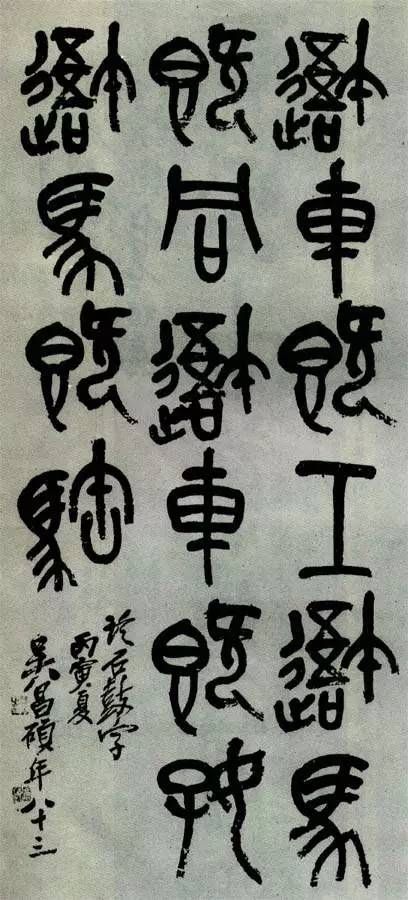 吾車既工吾馬
既同吾車既好
吾馬既
石鼓字
丙寅夏
吳昌碩年八十三